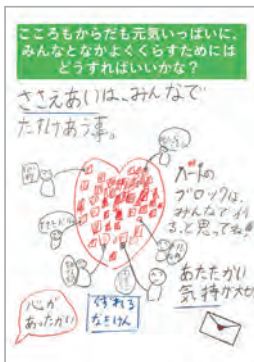 こころもからだも元気いっぱいに、
みんなとなかよくくらすためには
どうすればいいかな？
ささえあいは、みんなで
たすけあう事。
ハートの
ブロックは、
みんなで作
ると思ってね!
あたたかい
気持が大切
心が
あったかい
くずれる
なきけん